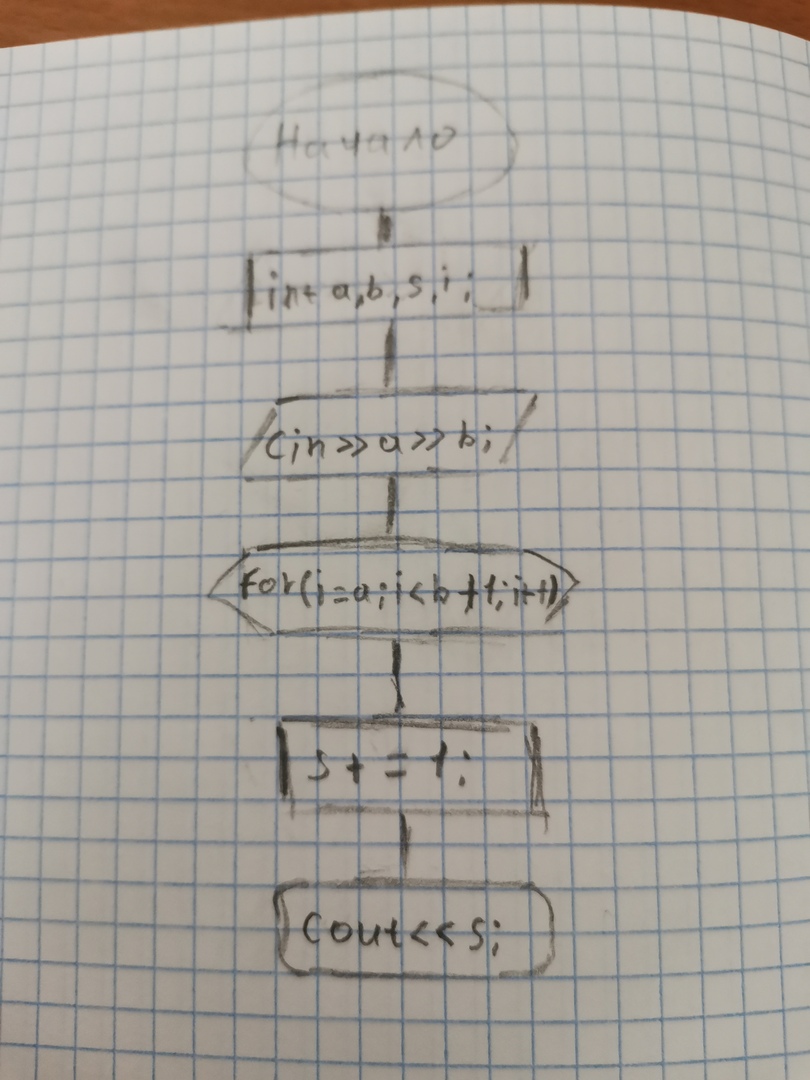 Начало
int a,b,s,i;
cin>>a>>b;
for(i=a;i<b+1;i++)
s+=1;
cout<<s;